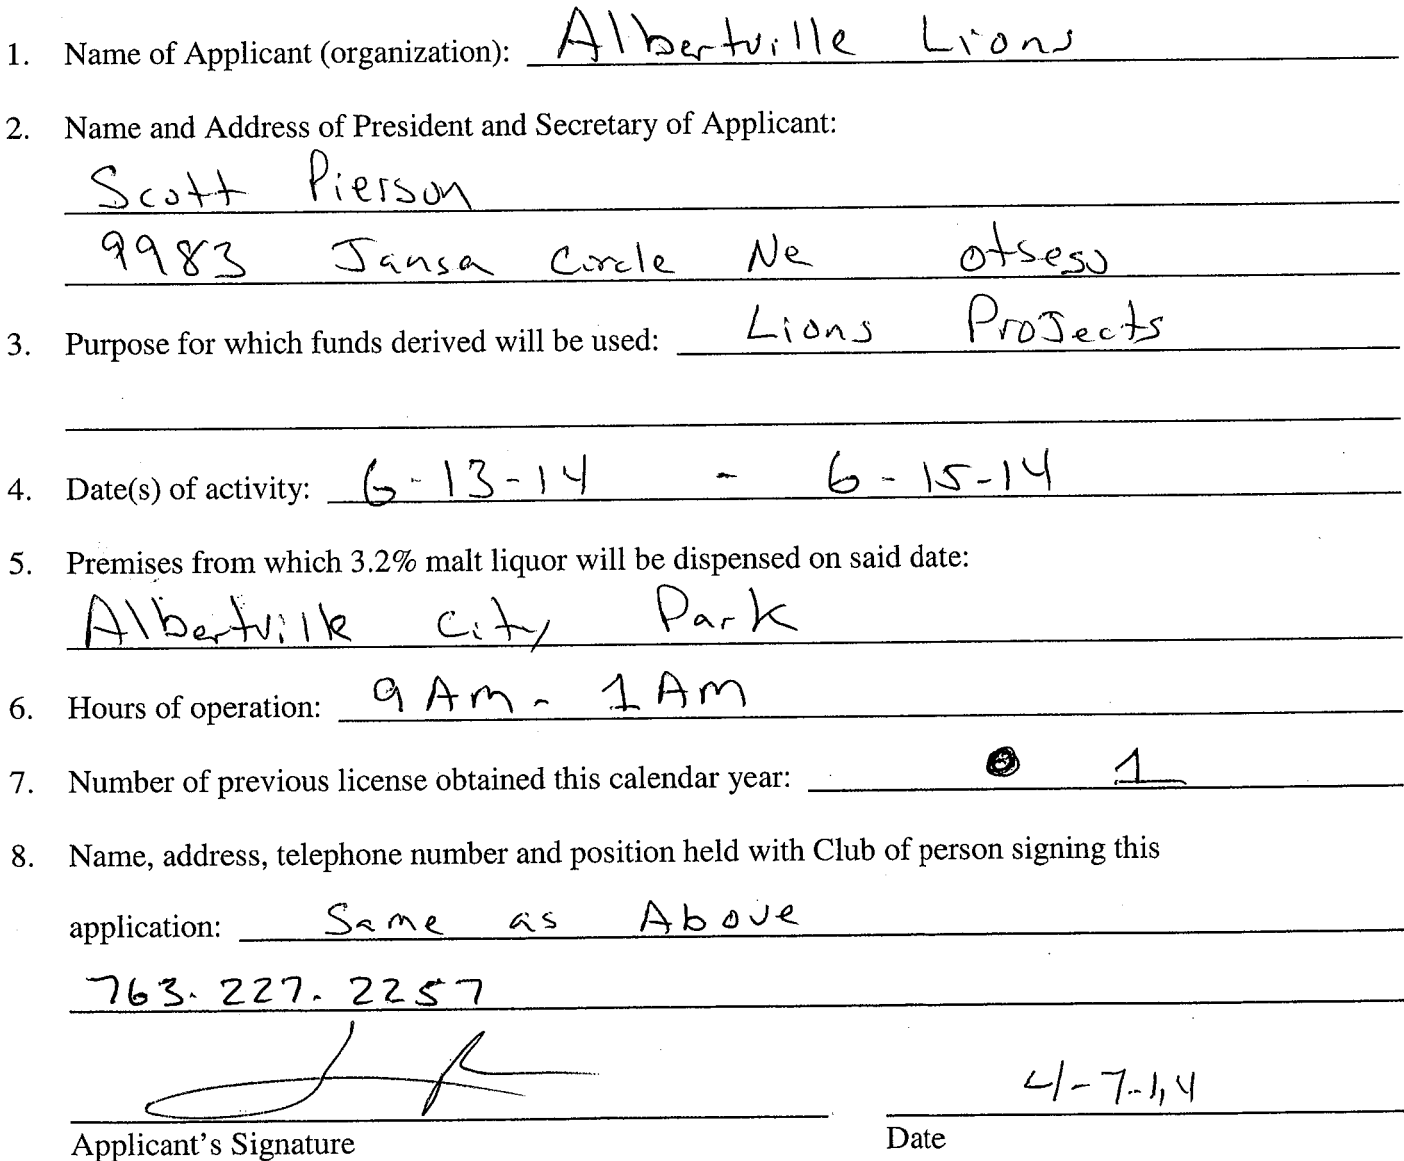 1. Name of Applicant (organization): Albertville Lions
2. Name and Address of President and Secretary of Applicant:
Scott Pierson
9983 Jansa Circle Ne otsego
3. Purpose for which funds derived will be used: Lions ProJects
4. Date(s) of activity: 6-13-14 - 6-15-14
5. Premises from which 3.2% malt liquor will be dispensed on said date:
Albertville City Park
6. Hours of operation: 9 Am - 1 Am
7. Number of previous license obtained this calendar year: 1
8. Name, address, telephone number and position held with Club of person signing this
application: Same as Above
763.227.2257
4-7-14
Applicant's Signature Date